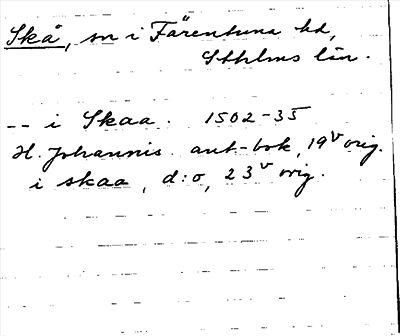 Skå, sn i Färentuna hd,
Sthlms län.
-- i Skaa. 1502-35
H. Johannis ant-bok, 19v orig.
i skaa, d:o, 23v orig.